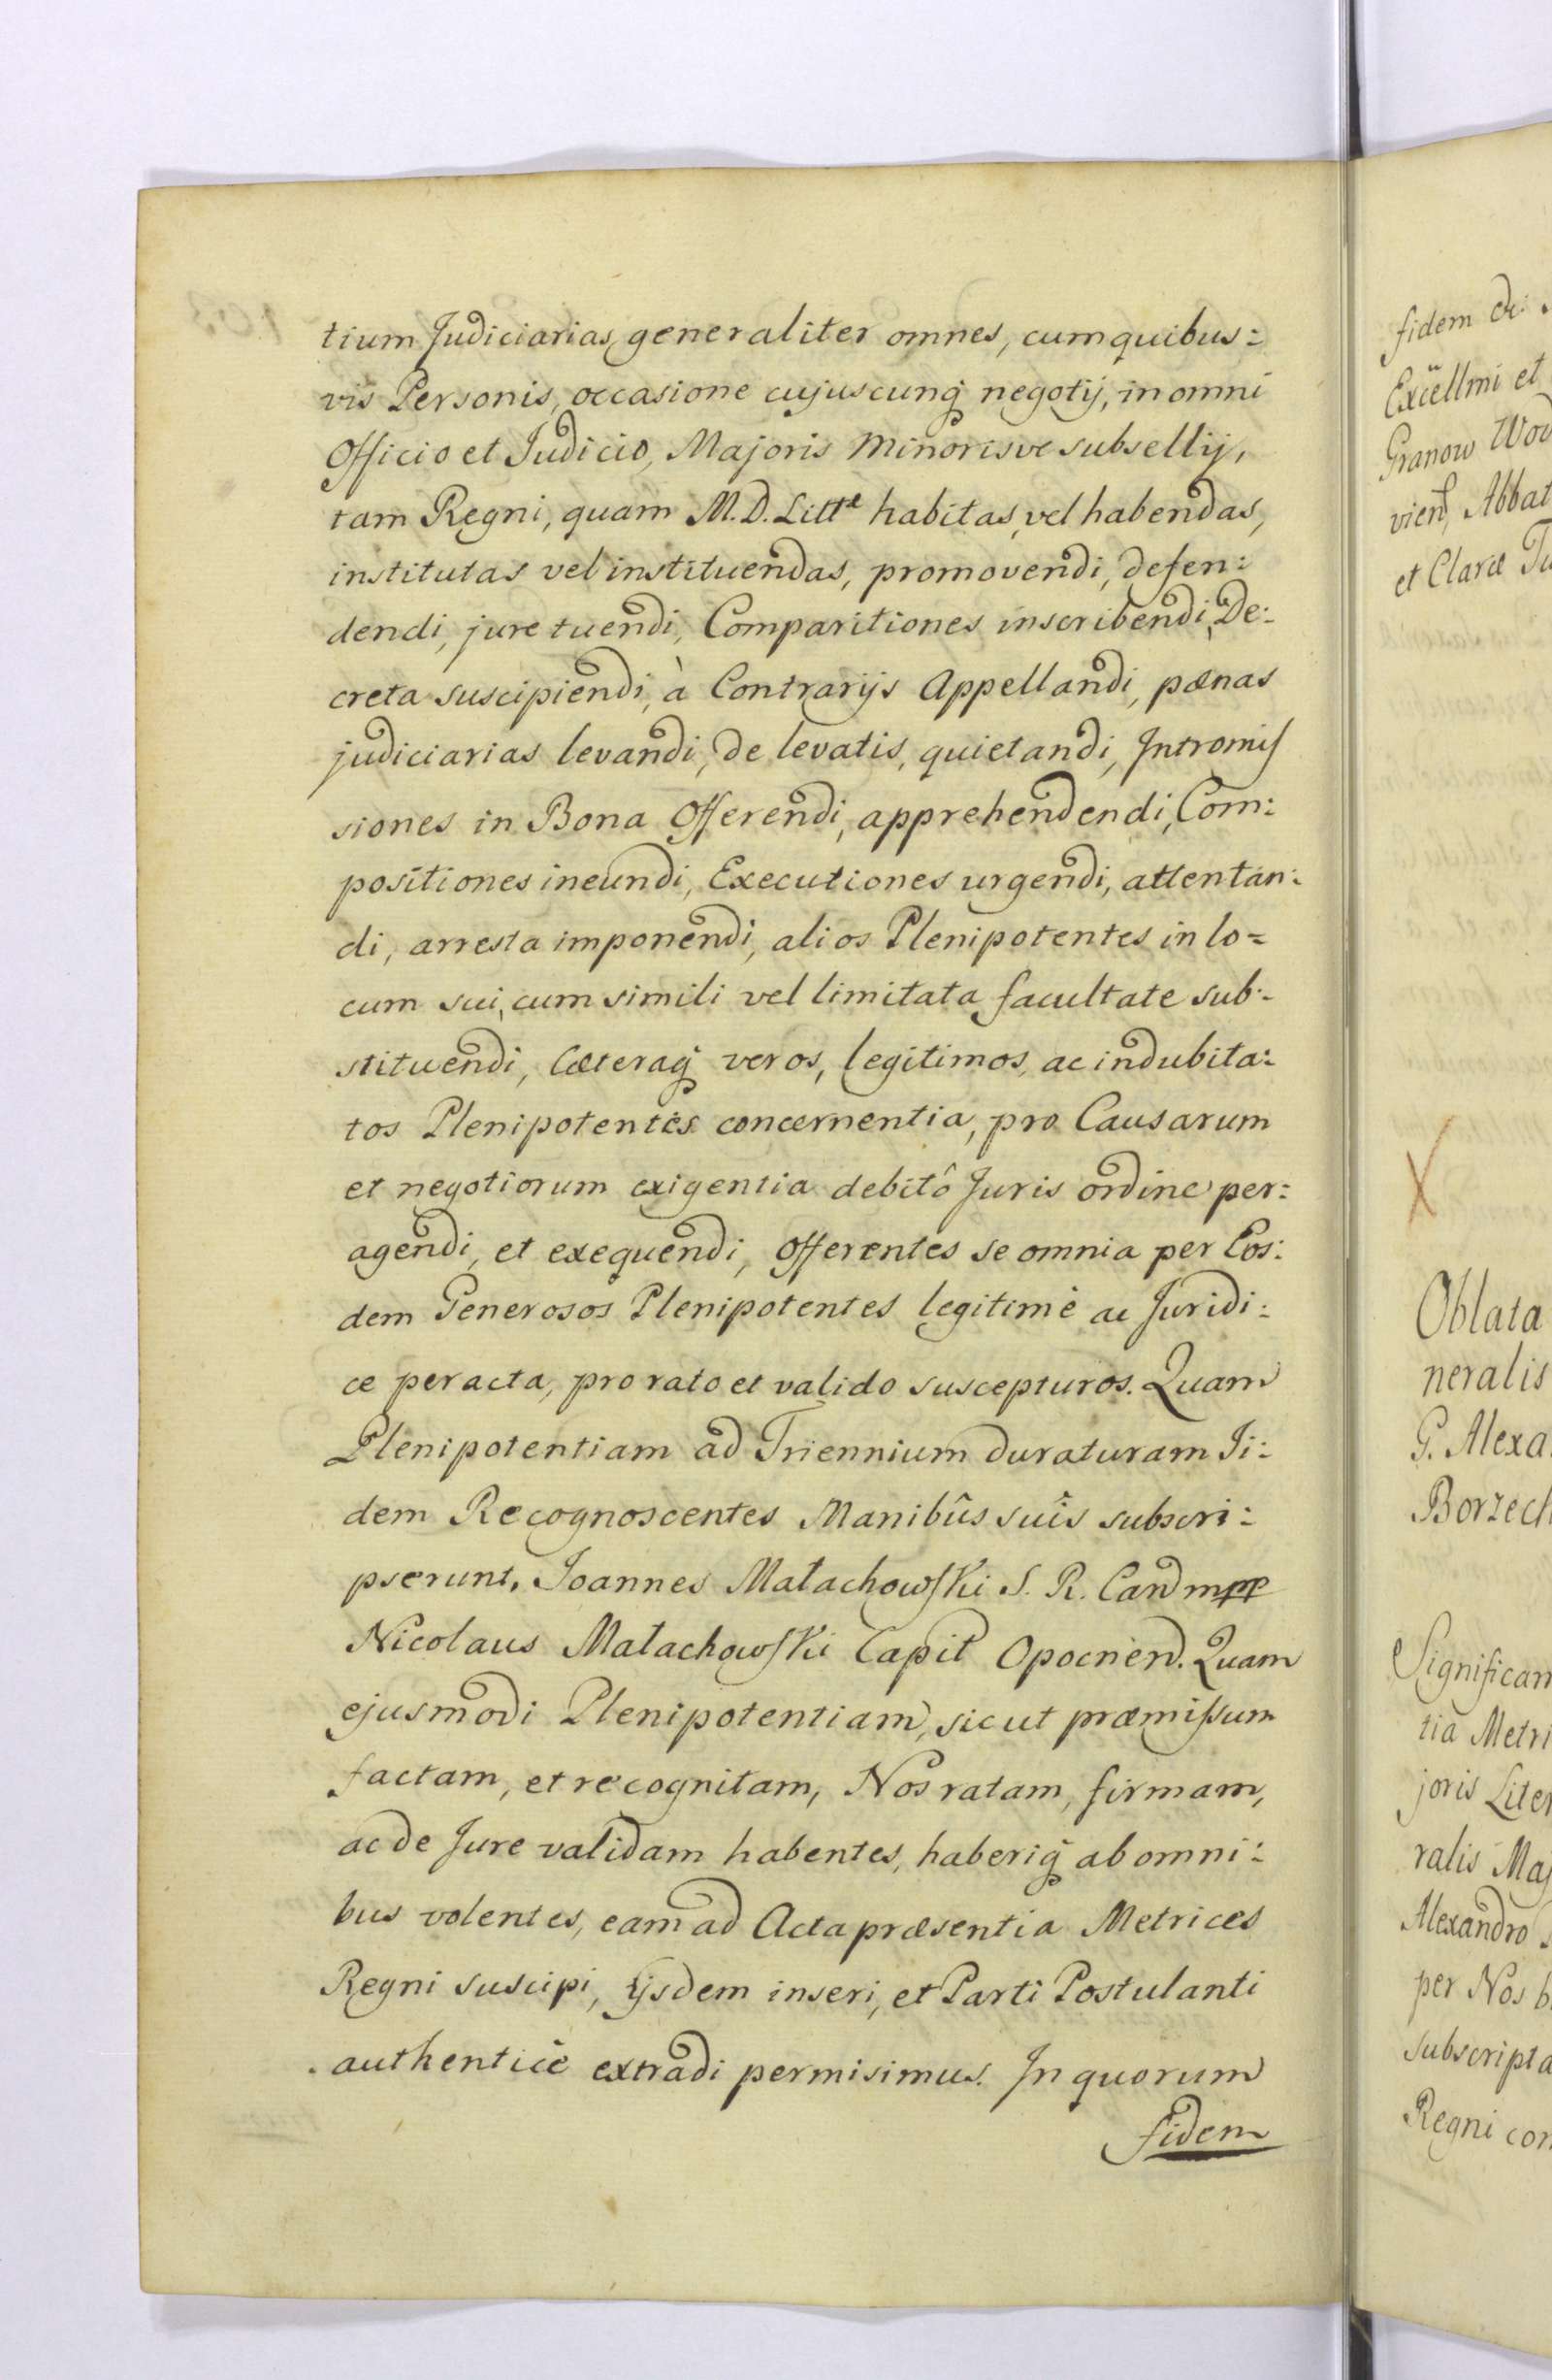 tium Judiciarias, generaliter omnes, cum quibus:
vis Personis, occasione cujuscunq̃ negotij, in omni
Officio et Judicio, Majoris Minorisve subsellij,
tam Regni, quam M. D. Litt͠e habitas, vel habendas,
institutas vel instituendas, promovendi, defen:
dendi, jure tuendi, Comparitiones inscribendi, De:
creta suscipiendi, à Contrarijs Appellandi, pœnas
judiciarias levandi, de levatis, quietandi, Intromiſ
siones in Bona Offerendi, apprehendendi, Com:
positiones ineundi, Executiones urgendi, attentan:
di, arresta imponendi, alios Plenipotentes in lo=
cum sui, cum simili vel limitata facultate sub:
stituendi, Cæteraq̃ veros, legitimos, ac indubita:
tos Plenipotentes concernentia, pro Causarum
et negotiorum exigentia debitô Juris ordine per:
agendi, et exequendi, Offerentes se omnia per Eos:
dem Generosos Plenipotentes legitimè ac Juridi:
ce peracta, pro rato et valido suscepturos. Quam
Plenipotentiam ad Triennium duraturam Ji:
dem Recognoscentes Manibûs suis subscri:
pserunt, Joannes Małachowſki S. R. Canc mpp
Nicolaus Małachowſki Capit Opocnen. Quam
ejusmodi Plenipotentiam, sicut præmiſsum
factam, et recognitam, Nos ratam, firmam,
ac de Jure validam habentes, haberiq̃ ab omni:
bus volentes, eam ad Acta præsentia Metrices
Regni suscipi, ijsdem inseri, et Parti Postulanti
authenticè extradi permisimus. In quorum
fidem
fidem
Excellmi et
Granow
vien, Abbat
et Claræ Tu
Oblata
neralis
G. Alexa
Borzech
Significam
tia Metri
joris Liter
ralis Maj
Alexandro
per Nos b
subscripta
Regni con